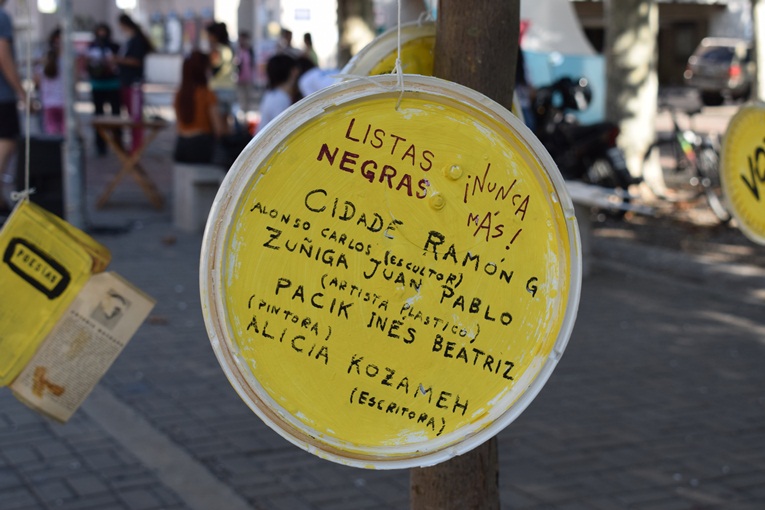 LISTAS
NEGRAS
¡NUNCA
MÁS!
CIDADE RAMÓN G
ALONSO CARLOS (ESCULTOR)
ZUÑIGA JUAN PABLO
(ARTISTA PLASTICO)
PACIK INÉS BEATRIZ
(PINTORA)
ALICIA KOZAMEH
(ESCRITORA)
POESIAS